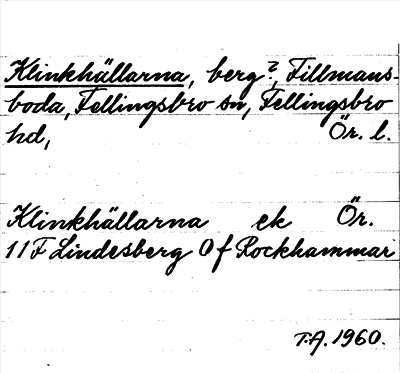 Klinkhällarna, berg?, Fillmans-
boda, Fellingsbro sn, Fellingsbro
hd, Ör. l.
Klinkhällarna ek Ör.
11F Lindesberg 0f Rockhammar
T.A. 1960.